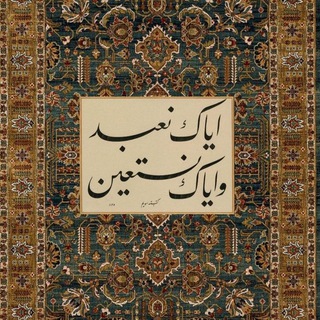 ایاک نعبد
وایاک نستعین